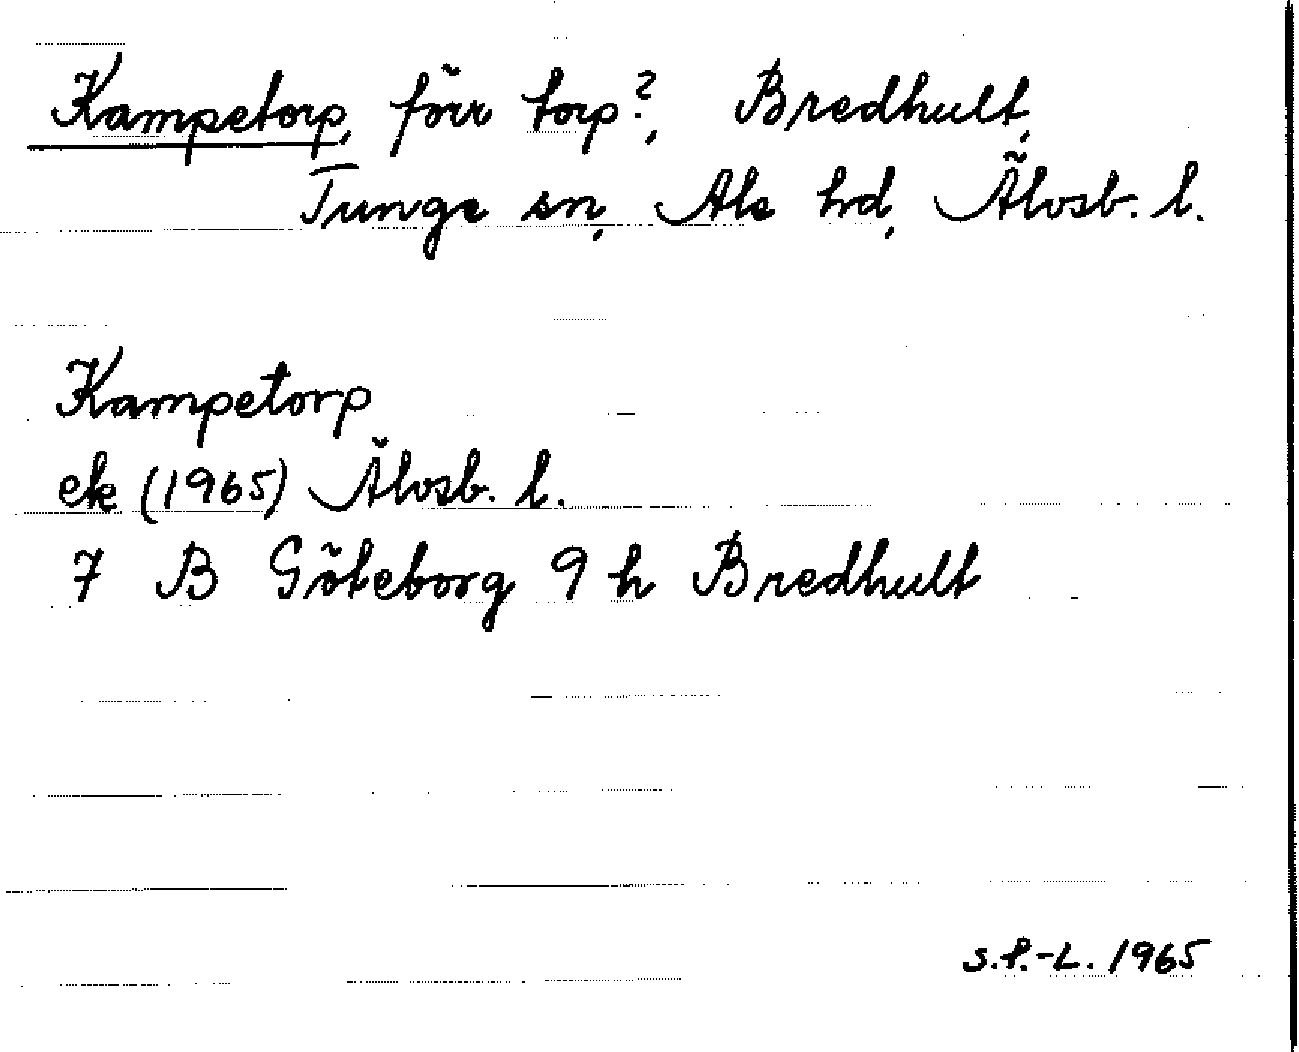 Kampetorp, förr torp?, Bredhult,
Tunge sn, Ale hd, Älvsb. l.
Kampetorp
ek (1965) Älvsb. l.
7 B Göteborg 9 h Bredhult
S.P.-L. 1965